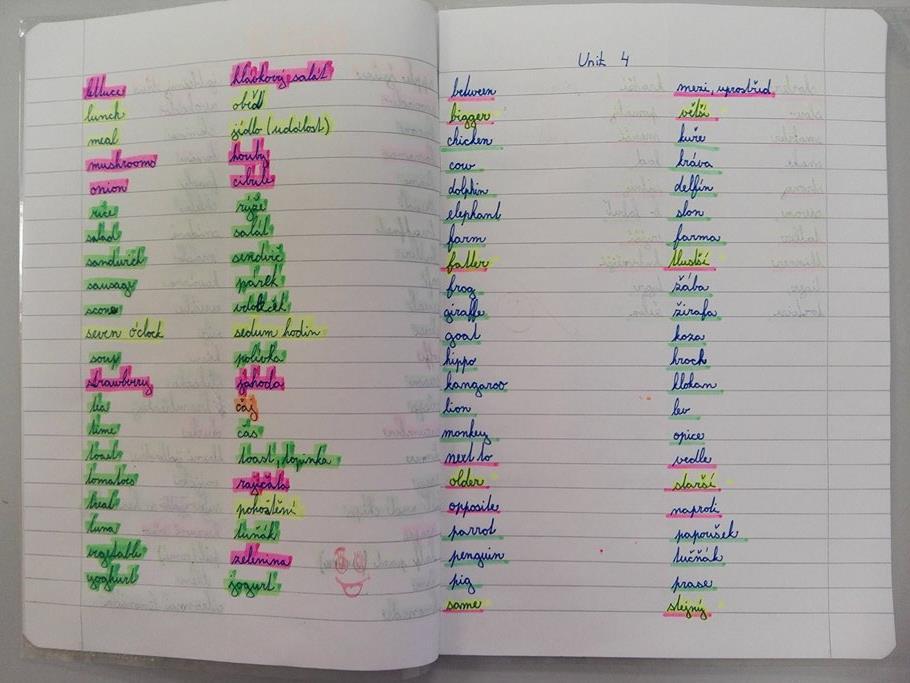 lettuce hlávkový salát
lunch oběd
meal jídlo (událost)
mushrooms houby
onion cibule
rice rýže
salad salát
sandwich sendvič
sausage párek
scone
seven o'clock sedum hodin
soup polívka
strawberry jahoda
tea čaj
time čas
toast toast, topinka
tomatoes rajčata
treat pohoštění
tuna tuňák
vegetable zelenina
yoghurt jogurt
Unit 4
between mezi, uprostřed
bigger větší
chicken kuře
cow kráva
dolphin delfín
elephant slon
farm farma
fatter tlustší
frog žába
giraffe žirafa
goat koza
hippo hroch
kangaroo klokan
lion lev
monkey opice
next to vedle
older starší
opposite naproti
parrot papoušek
penguin tučňák
pig prase
same stejný